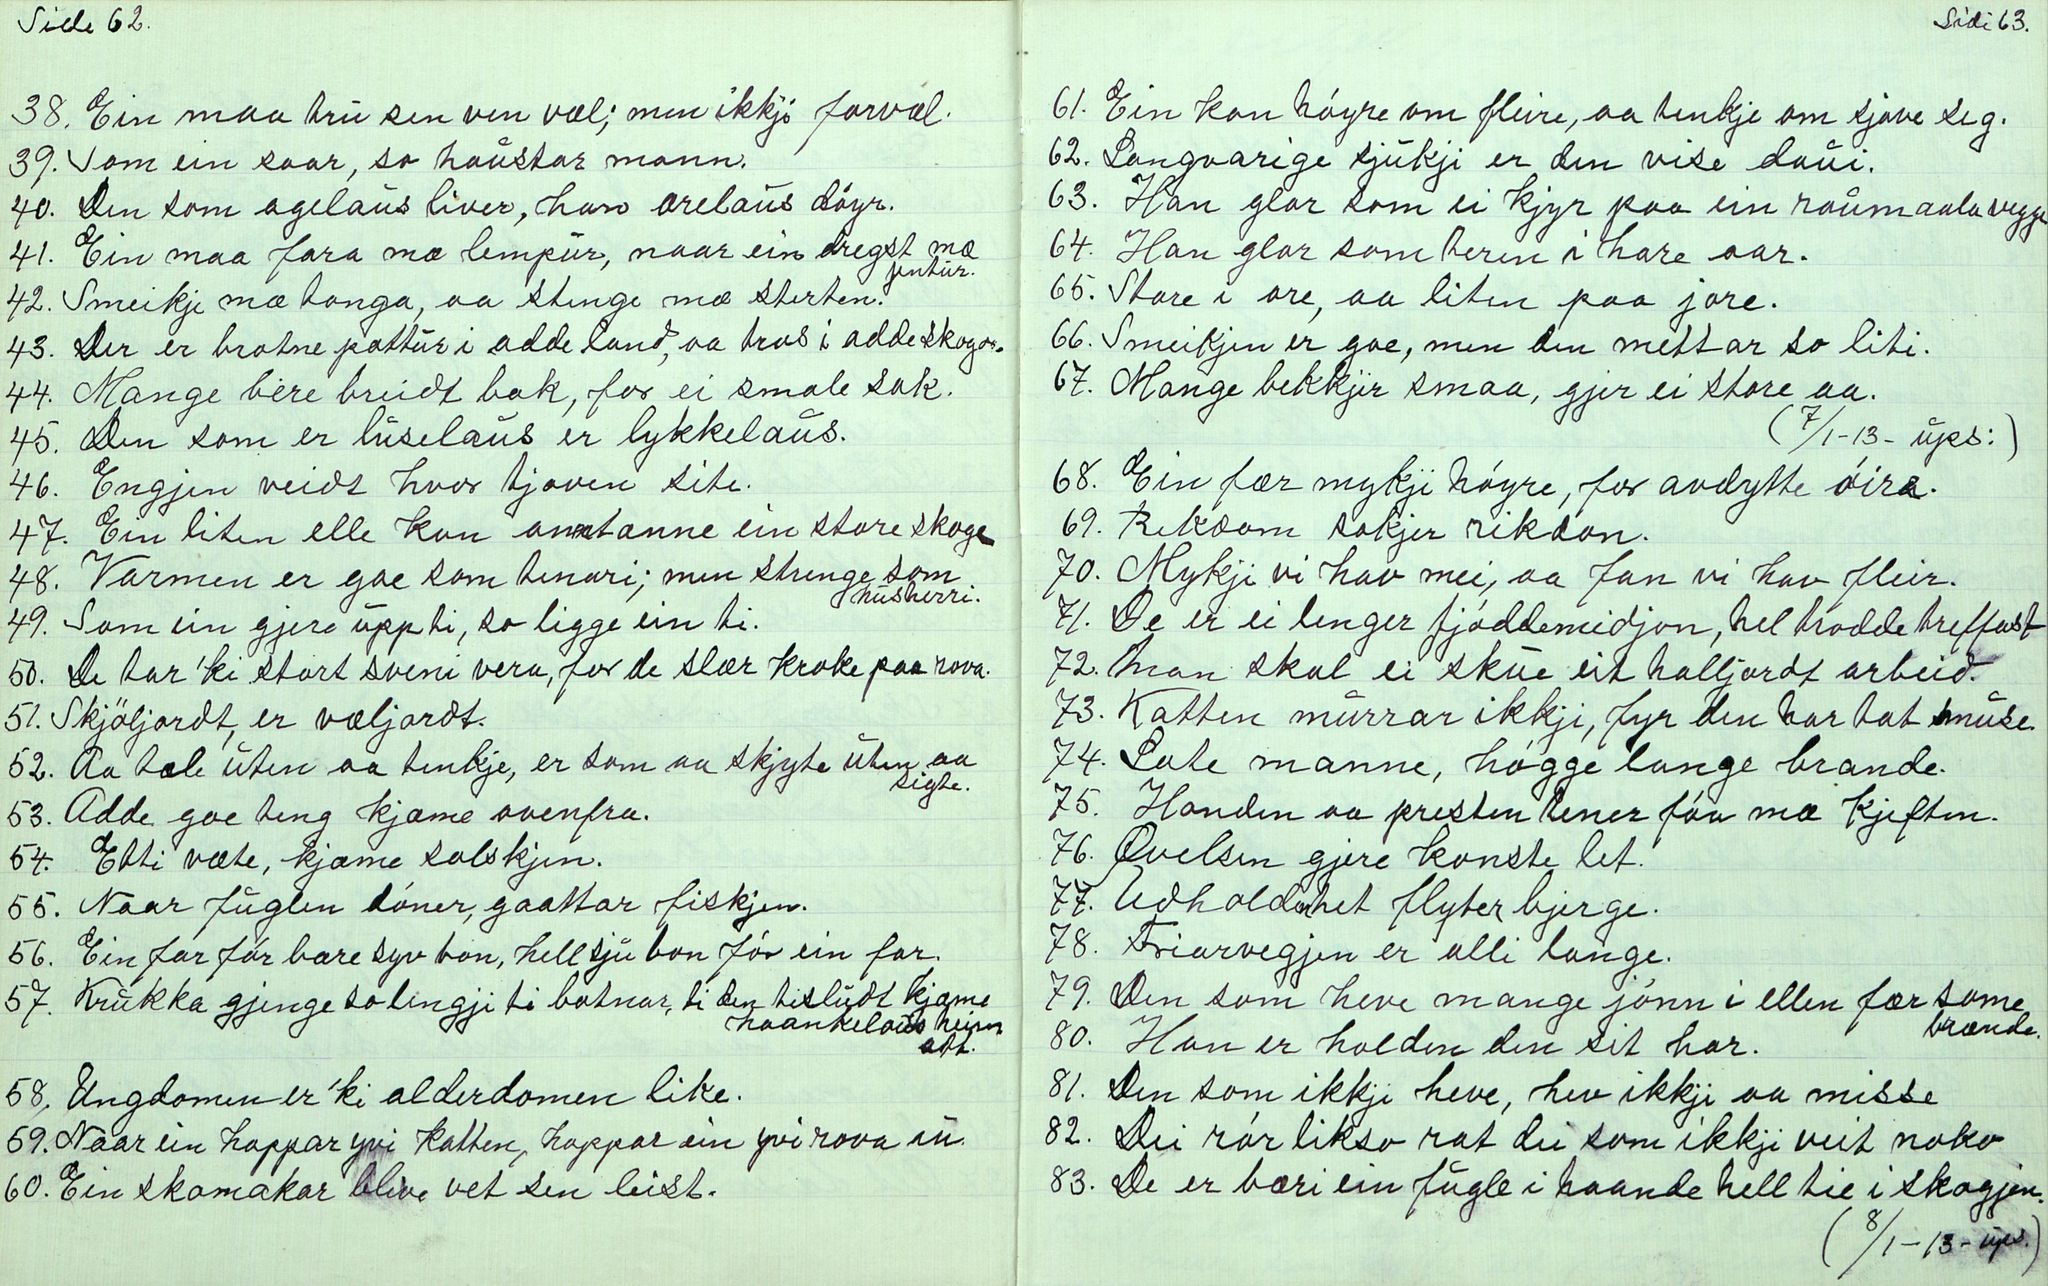 Side 62.
38. Ein maa trú sen ven væl; men ikkji forvæl.
39. Som ein saar, so haústar mann.
40. Den som agelaús liver, han ærelaús döyr.
41. Ein maa fara mæ lempúr, naar ein dregst mæ
jentúr.
42. Smeikje mæ tonga, aa stenge mæ sterten.
43. Der er brotne pottúr i adde land, aa tros i adde skogar.
44. Mange bere breidt bak, for ei smale sak.
45. Den som er lúselaús er lykkelaús.
46. Engjen veidt hvor tjoven site.
47. Ein liten elle kan antanne ein store skoge
48. Varmen er goe som tenari; men strenge som
húsherri.
49. Som ein gjere úpp ti, so ligge ein ti.
50. De tar 'ki stort sveni vera, for de slær kroke paa rova.
51. Skjöljordt, er væljordt.
52. Aa tale úten aa tenkje, er som aa skjyte úten aa
sigte.
53. Adde goe teng kjæme ovenfra.
54. Etti væte, kjæme solskjen.
55. Naar fúglen döner, gaattar fiskjen.
56. Ein far för bære syv bon, hell sjú bon för ein far.
57. Krúkka gjenge so lengji ti botnar, ti den tislúdt kjæme
haankelaús heim
att.
58. Ungdomen er 'ki alderdomen like.
59. Naar ein hoppar yvi katten, hoppar ein yvi rova ú
60. Ein skomakar blive vet sen leist.
Sidi 63.
61. Ein kan höyre om fleire, aa tenkje om sjove seg.
62. Langvarige sjúkji er den vise daúi.
63. Han glor som ei kjyr paa ein raúmaala vegge
64. Han glor som teren i hare aar.
65. Store i ore, aa liten paa jore.
66. Smeikjen er goe, men den mettar so liti.
67. Mange bekkjir smaa, gjer ei store aa.
(7/1-13- úps:)
68. Ein fær mykji höyre, for avdytte öira.
69. Rikdom sokjer rikdon.
70. Mykji vi hav mei, aa fan vi hav fleir.
71. De er ei lenger tjöddemidjon, hel trodde treffast
72. Man skal ei skúe eit halljordt arbeid.
73. Katten múrrar ikkji, fyr den har tat múse.
74. Late manne, högge lange brande.
75. Handen aa presten tener föa mæ kjeften.
76. Øvelsen gjere konste let.
77. Udholdenhet flyter bjerge.
78. Friarvegjen er alli lange.
79. Den som heve mange jönn i ellen fær some
brænde.
80. Han er holden den sit har.
81. Den som ikkji heve, hev ikkji aa misse
82. Dei rör likso rat dei som ikkji veit noko
83. De er bæri ein fúgle i haande hell tie i skogjen.
(8/1-13- úps.)